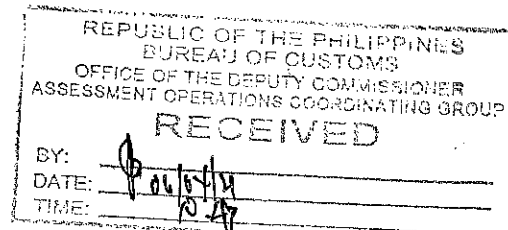 REPUBLIC OF THE PHILIPPINES
BUREAU OF CUSTOMS
OFFICE OF THE DEPUTY COMMISSIONER
ASSESSMENT OPERATIONS COORDINATING GROUP
RECEIVED
BY:
DATE:
TIME: